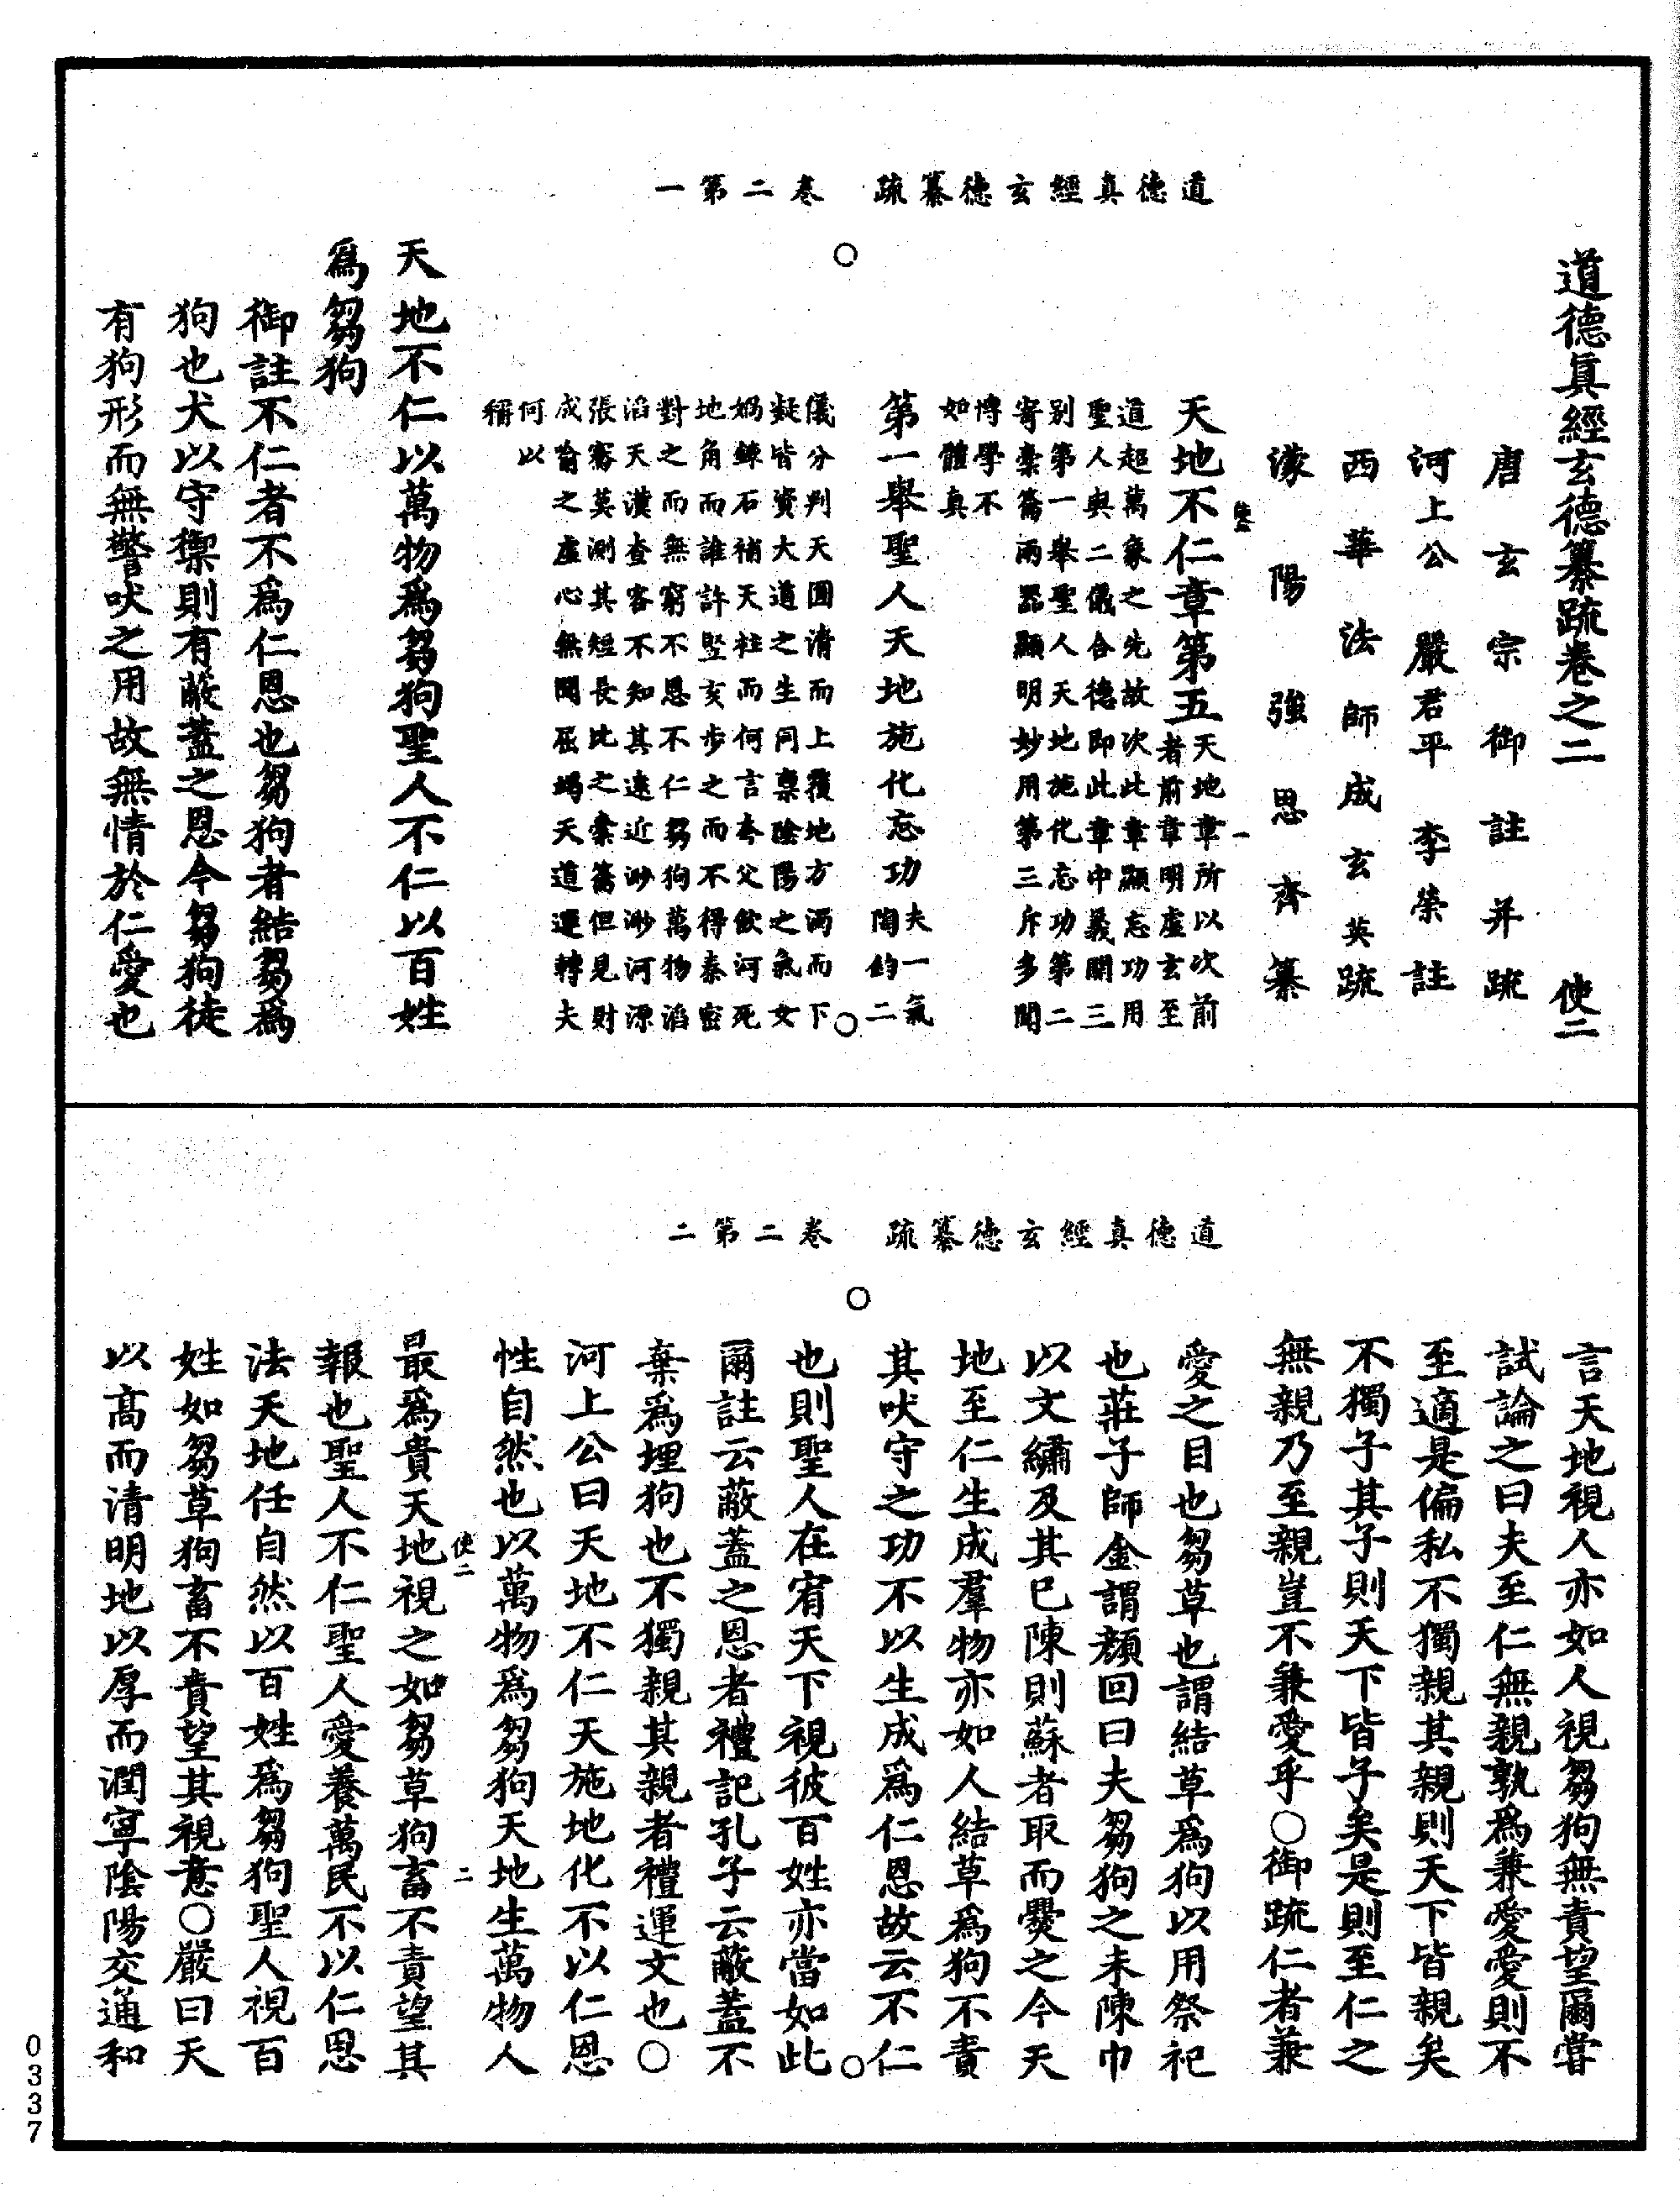 道德真經玄德纂疏　卷二第一
道德真經玄德纂疏卷之二　使二
唐玄宗御註并疏
河上公　嚴君平　李榮註
西華法師成玄英疏
濛陽強思齊纂
使二　一
天地不仁章第五天地章所以次前
者前章明虛玄至
道超萬象之先故次此章顯忘功用
聖人與二儀合德即此章中義開三
別第一舉聖人天地施化忘功第二
寄橐籥兩器顯明妙用第三斥多聞
博學不
如體真
第一舉聖人天地施化忘功夫一氣
陶鈞二
儀分判天圓清而上覆地方濁而下
凝皆資大道之生同稟陰陽之氣女
媧鍊石補天柱而何言夸父飲河死
地角而誰許竪亥步之而不得秦密
對之而無窮不恩不仁芻狗萬物滔
滔天漢查客不知其遠近渺渺河漂
張騫莫測其短長比之橐籥但見財
成喻之虛心無聞屈竭天道運轉夫
何以
稱
天地不仁以萬物爲芻狗聖人不仁以百姓
爲芻狗
御註不仁者不爲仁恩也芻狗者結芻爲
狗也犬以守禦則有蔽蓋之恩今芻狗徒
有狗形而無警吠之用故無情於仁愛也
道德真經玄德纂疏　卷二第二
言天地視人亦如人視芻狗無責望爾嘗
試論之曰夫至仁無親孰爲兼愛愛則不
至適是偏私不獨親其親則天下皆親矣
不獨子其子則天下皆子矣是則至仁之
無親乃至親豈不兼愛乎○御疏仁者兼
愛之目也芻草也謂結草爲狗以用祭祀
也莊子師金謂顏回曰夫芻狗之未陳巾
以文繡及其已陳則蘇者取而爨之今天
地至仁生成羣物亦如人結草爲狗不責
其吠守之功不以生成爲仁恩故云不仁
也則聖人在宥天下視彼百姓亦當如此
爾註云蔽蓋之恩者禮記孔子云蔽蓋不
棄爲埋狗也不獨親其親者禮運文也○
河上公曰天地不仁天施地化不以仁恩
性自然也以萬物爲芻狗天地生萬物人
使二　二
最爲貴天地視之如芻草狗畜不責望其
報也聖人不仁聖人愛養萬民不以仁恩
法天地任自然以百姓爲芻狗聖人視百
姓如芻草狗畜不責望其視意○嚴曰天
以高而清明地以厚而潤寧陰陽交通和
0337